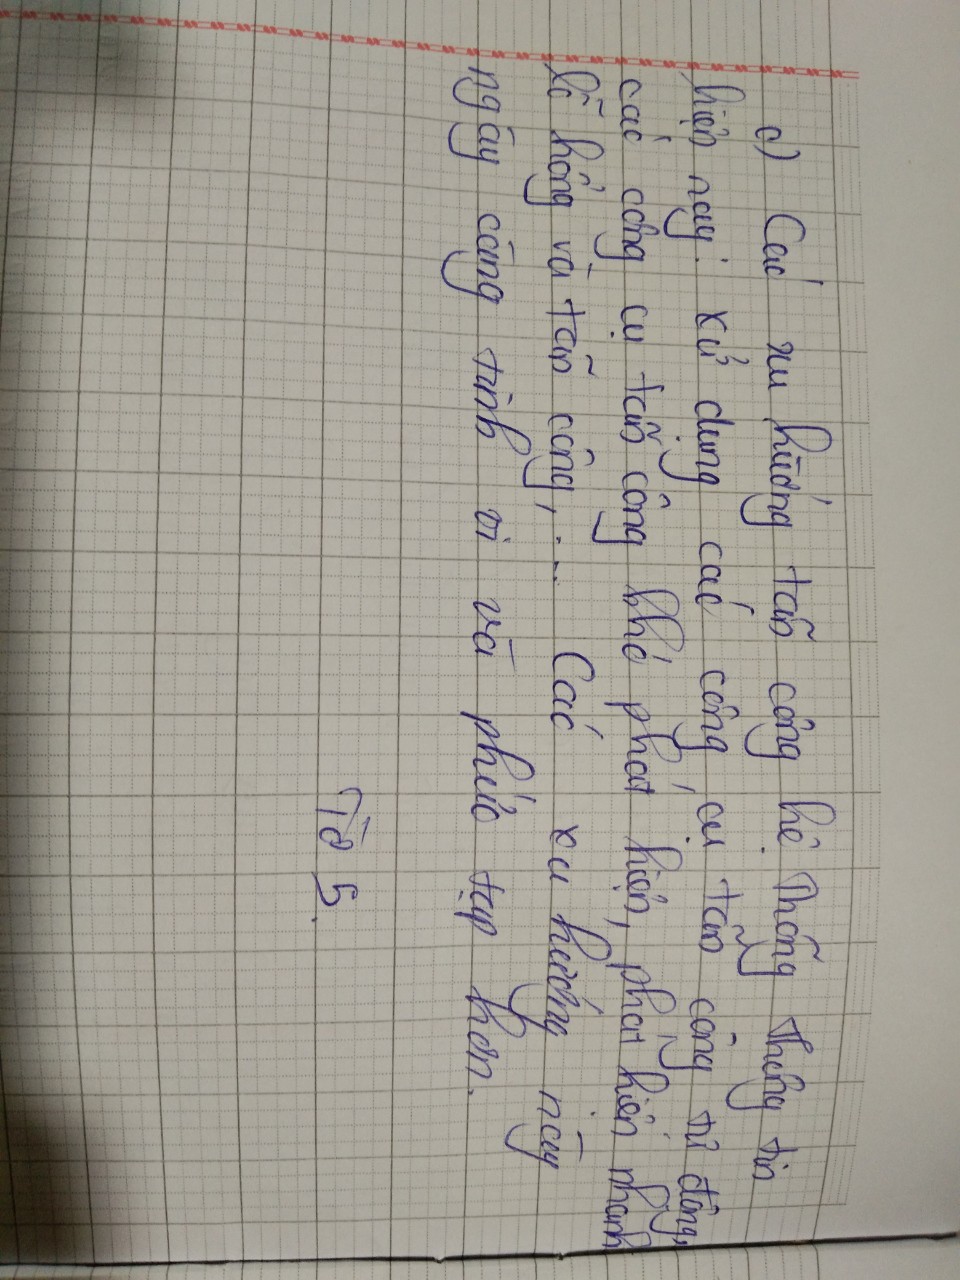 c) Các xu hướng tấn công hệ thống thông tin
hiện nay: xử dụng các công cụ tấn công tự động,
các công cụ tấn công khó phát hiện, phát hiện nhanh
lỗ hổng và tấn công, ... Các xu hướng này
ngày càng tinh vi và phức tạp hơn.
Tờ 5.